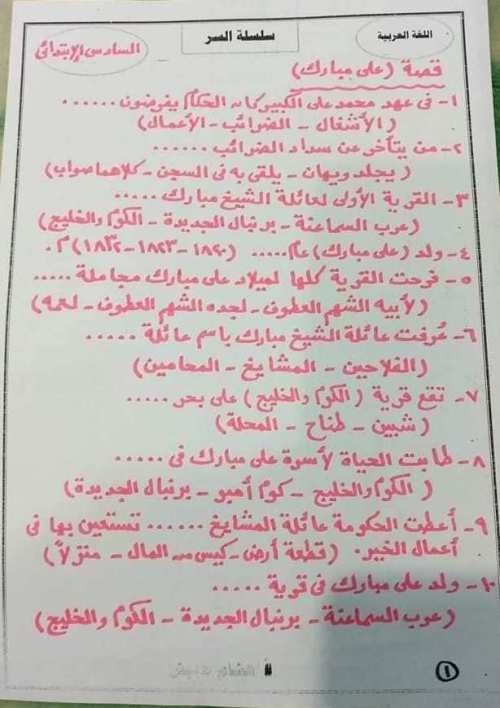 اللغة العربية
سلسلة السر
السادس الإبتدائى
قصة (على مبارك)
١- فى عهد محمد على الكبير كان الحكام يفرضون ......
(الأشغال - الضرائب - الأعمال)
٢- من يتأخر عن سداد الضرائب ......
(يجلد ويهان - يلقى به فى السجن - كلاهما صواب)
٣- القرية الأولى لعائلة الشيخ مبارك .....
(عرب السماعنة - برنبال الجديدة - الكوم والخليج)
٤- ولد (على مبارك) عام ..... (١٨٢٠ - ١٨٢٣ - ١٨٢٢) م.
٥- فرحت القرية كلها لميلاد على مبارك مجاملة .....
(لأبيه الشهم العطوف - لجده الشهم العطوف - لعمه)
٦- عُرفت عائلة الشيخ مبارك باسم عائلة .....
(الفلاحين - المشايخ - المحامين)
٧- تقع قرية (الكوم والخليج) على بحر .....
(شبين - طناح - المحلة)
٨- طابت الحياة لأسرة على مبارك فى .....
(الكوم والخليج - كوم أمبو - برنبال الجديدة)
٩- أعطت الحكومة عائلة المشايخ ...... تستعين بها فى
أعمال الخير. (قطعة أرض - كيس من المال - منزلاً)
١٠- ولد على مبارك فى قرية .....
(عرب السماعنة - برنبال الجديدة - الكوم والخليج)
١